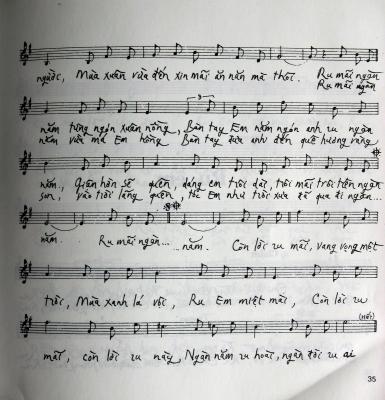 ngước, Mùa xuân vừa đến xin mãi ăn năn mà thôi. Ru mãi ngàn
Ru mãi ngàn
3
năm từng ngón xuân nồng, Bàn tay Em năm ngón anh ru ngàn
năm vừa má Em hồng Bàn tay đưa anh đến quê hương vàng
năm, Giận hờn sẽ quên, dáng em trôi dài, trôi mãi trôi trên ngàn
son, vào trời lãng quên, tóc Em như trời xưa đã qua đi ngàn...
năm. Ru mãi ngàn... năm. Còn lời ru mãi, vang vọng một
trời, Mùa xanh lá vội, Ru Em miệt mài, Còn lời ru
(Hết)
mãi, còn lời ru này, Ngàn năm ru hoài, ngàn đời ru ai
35